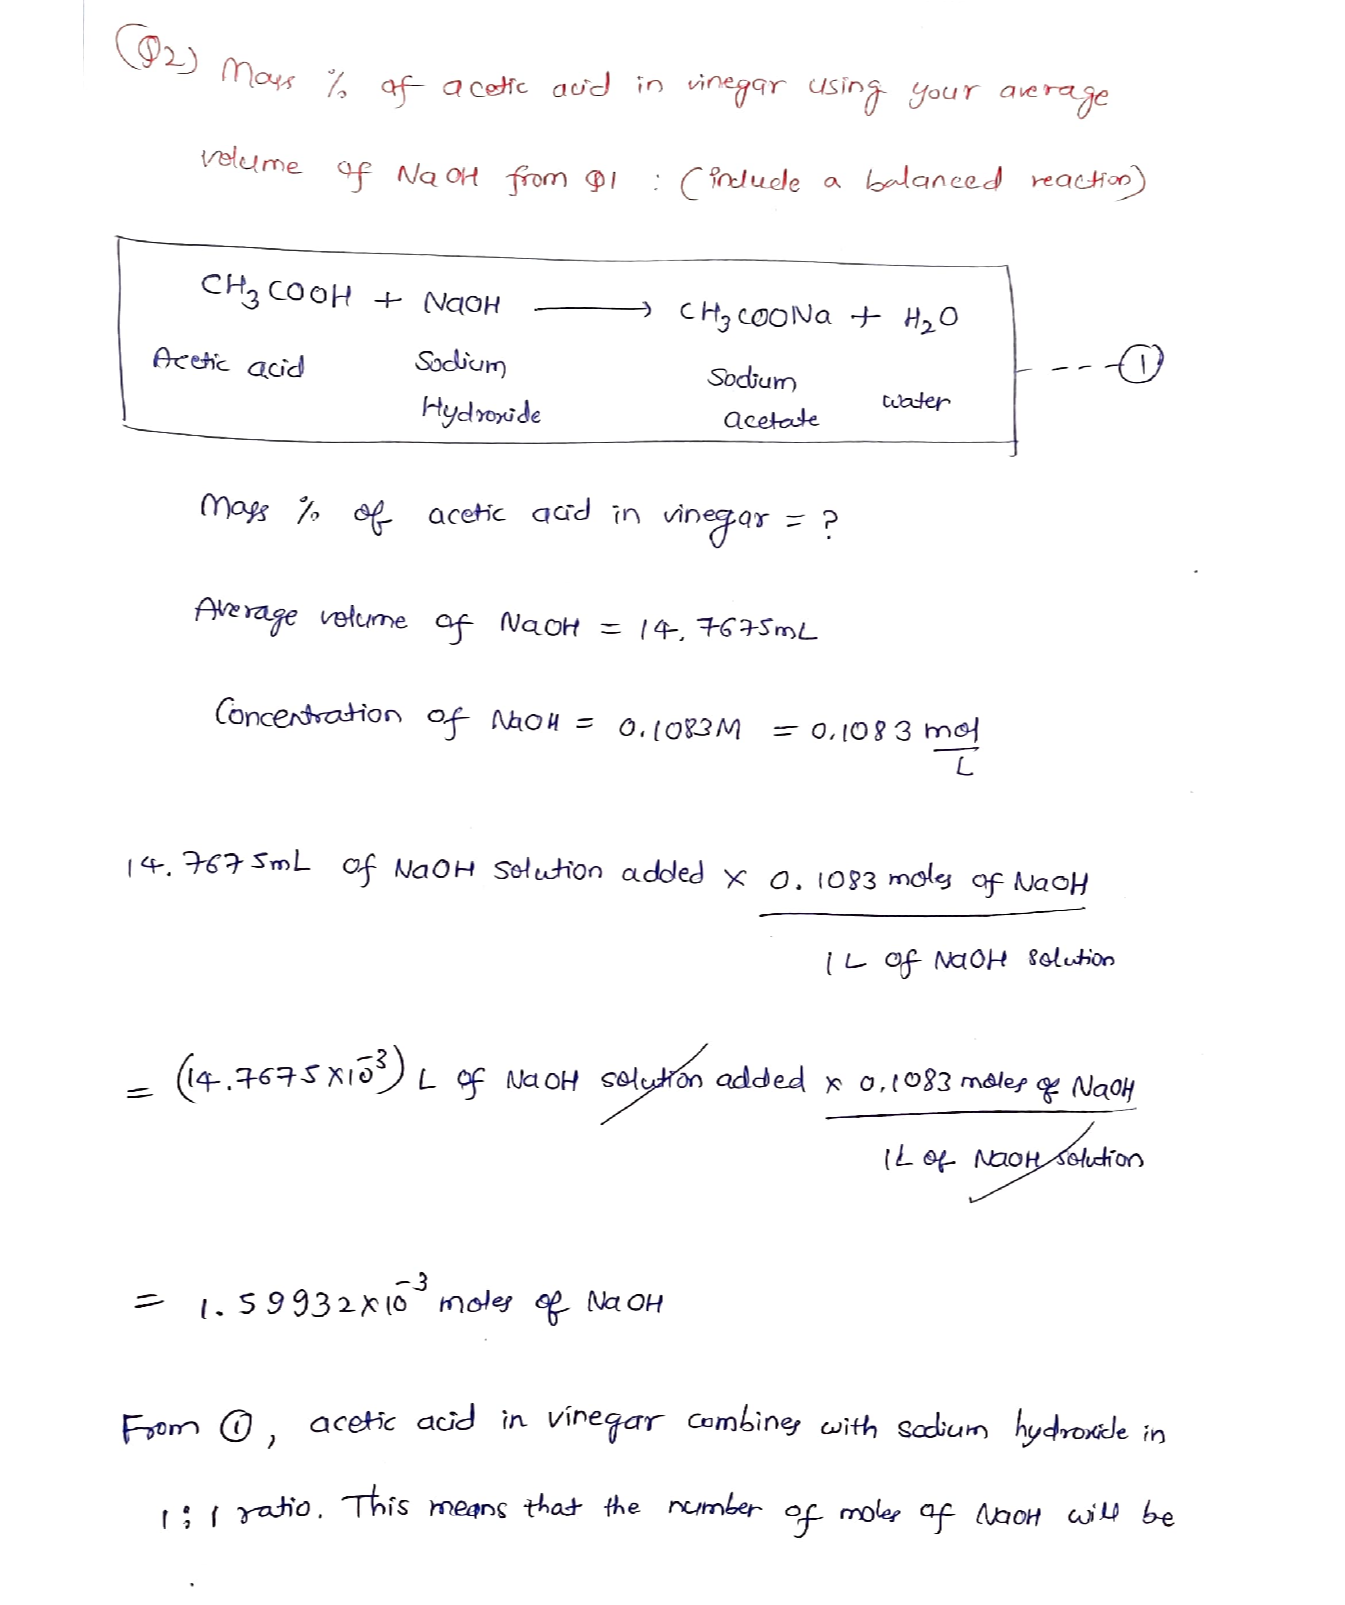 Q2) Mass % of acetic acid in vinegar using your average
volume of NaOH from Q1 : (include a balanced reaction)
CH3COOH + NaOH ⟶ CH3COONa + H2O
Acetic acid Sodium Hydroxide Sodium acetate water ---①
Mass % of acetic acid in vinegar = ?
Average volume of NaOH = 14.7675mL
Concentration of NaOH = 0.1083M = 0.1083 mol/L
14.7675mL of NaOH solution added x 0.1083 moles of NaOH
1L of NaOH solution
= (14.7675x10^-3) L of NaOH solution added x 0.1083 moles of NaOH
1L of NaOH solution
= 1.59932x10^-3 moles of NaOH
From ①, acetic acid in vinegar combines with sodium hydroxide in
1:1 ratio. This means that the number of moles of NaOH will be